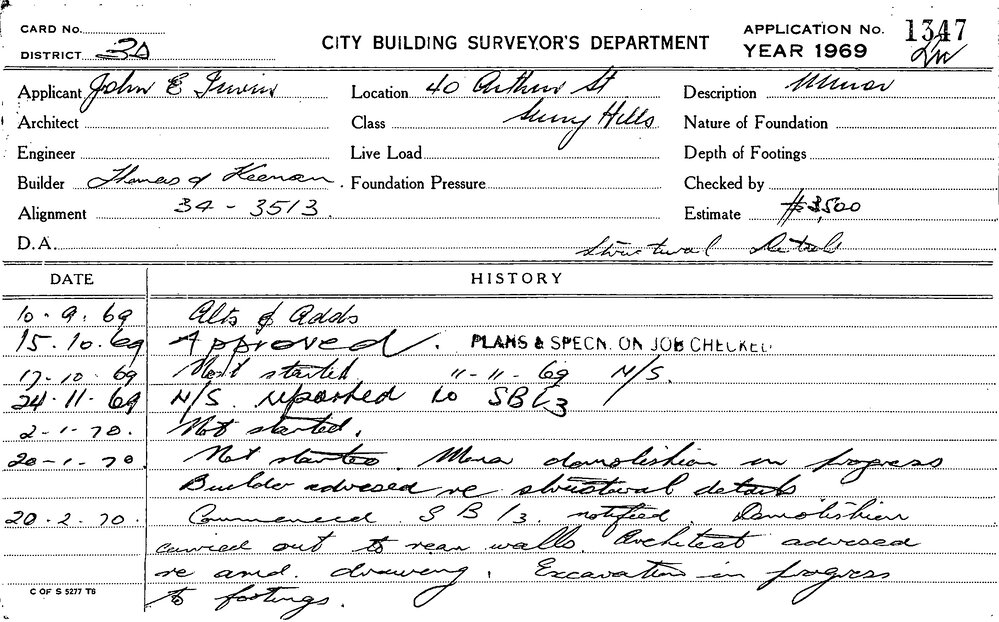 CARD No.
DISTRICT 3D
CITY BUILDING SURVEYOR'S DEPARTMENT
APPLICATION No. 1347
YEAR 1969
Applicant John E Irwin Location 40 Arthur St Description Minor
Architect Class Surry Hills Nature of Foundation
Engineer Live Load Depth of Footings
Builder Thomas & Keenan. Foundation Pressure Checked by
Alignment 34 - 3513. Estimate $3,500
D.A. Structural Details
DATE HISTORY
10.9.69 Alts & Adds
15.10.69 Approved. PLANS & SPECN. ON JOB CHECKED
17-10.69 Not started 11-11-69 N/S.
24.11.69 N/S. reported to SBI3
2-1-70. Not started.
20-1-70. Not started. Minor demolishion in progress
Builder advised re structural details
20.2.70. Commenced SBI3. notified. Demolishion
carried out to rear walls. Architect advised
re amd. drawing. Excavation in progress
to footings.
C OF S 5277 T6